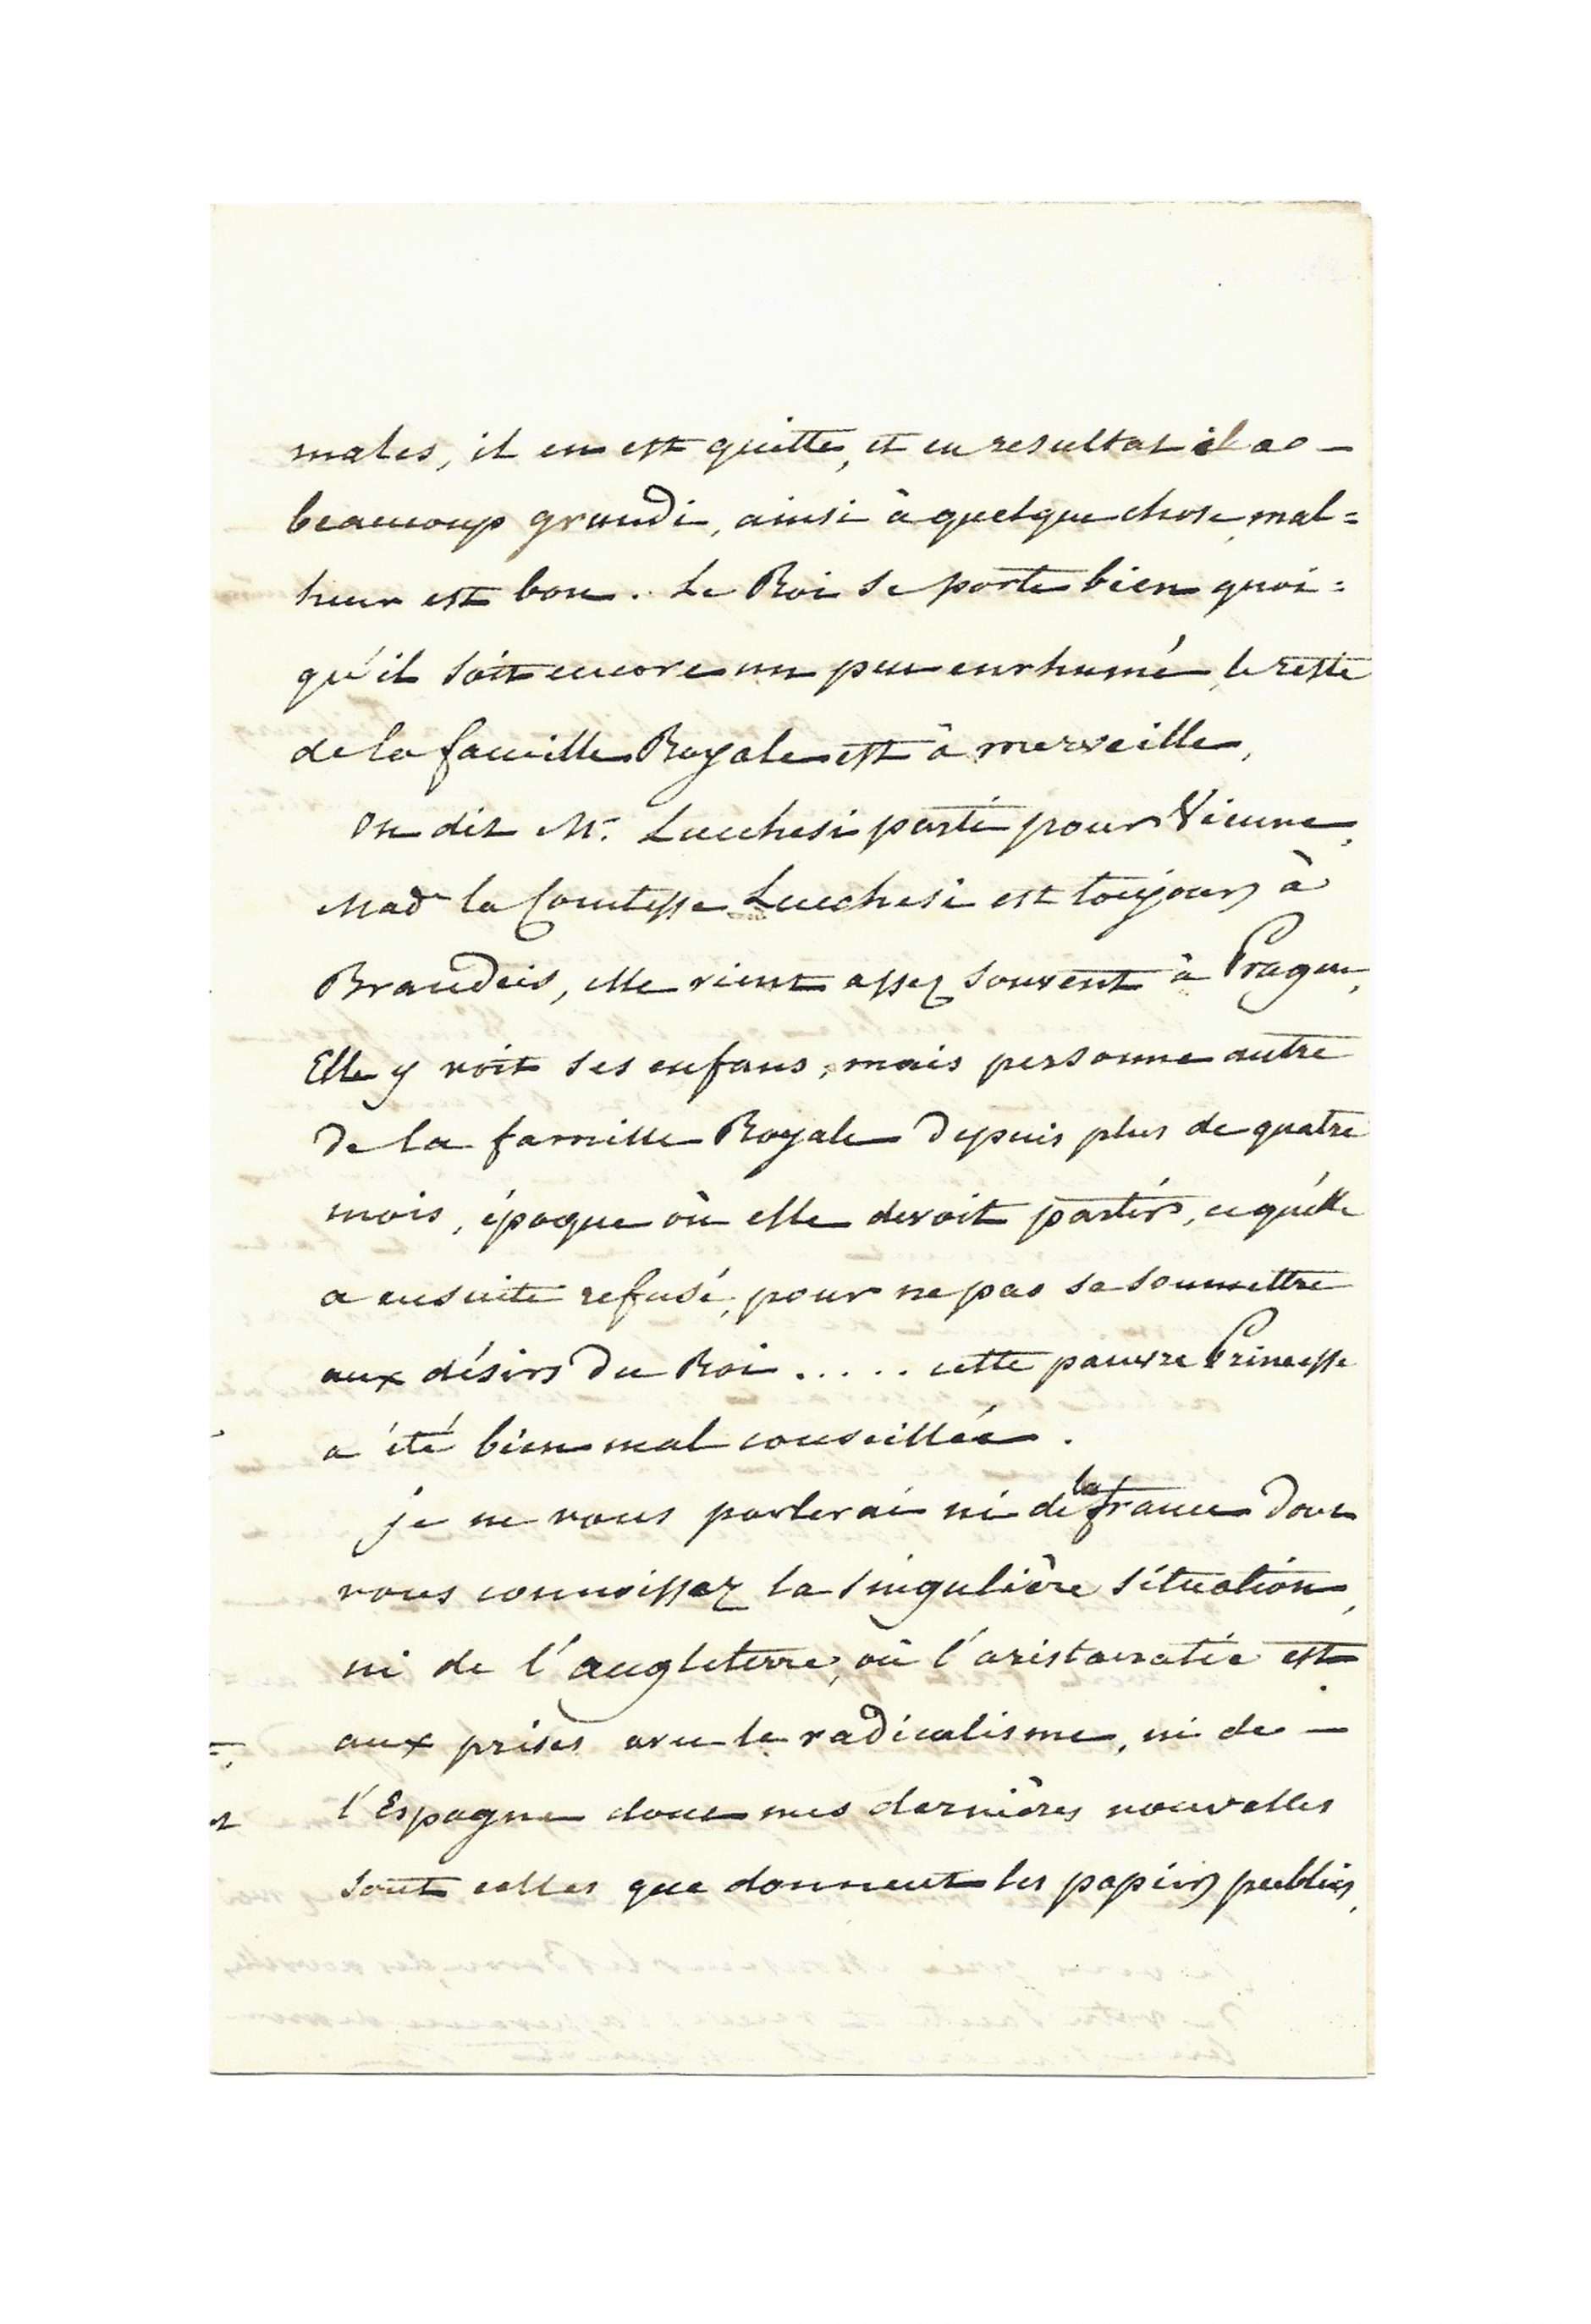 males, il en est quitte, et en resultat il a —
beaucoup grandi, ainsi à quelque chose mal=
heur est bon. Le Roi se porte bien quoi=
qu'il soit encore un peu enrhumé, le reste
de la famille Royale est à merveille,
On dit Mr. Lucchesi parti pour Vienne,
Made la Comtesse Lucchesi est toujours à
Brandeis, elle vient assez souvent à Prague,
Elle y voit ses enfans, mais personne autre
de la famille Royale depuis plus de quatre
mois, époque où elle devoit partir, ce qu'elle
a ensuite refusé, pour ne pas se soumettre
aux désirs du Roi ..... cette pauvre Princesse
a été bien mal conseillée.
je ne vous parlerai ni de la france dont
vous connoissez la singulière situation,
ni de l'angleterre, où l'aristocratie est
aux prises avec le radicalisme, ni de —
l'Espagne dont mes dernières nouvelles
sont celles que donnent les papiers publics,